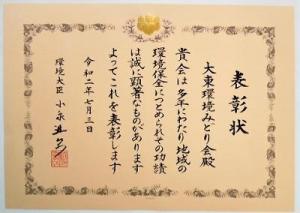 表彰状
大東環境みどり会殿
貴会は多年にわたり地域の
環境保全につとめられその功績
は誠に顕著なものがあります
よってこれを表彰します
令和二年七月三日
環境大臣 小泉進次郎